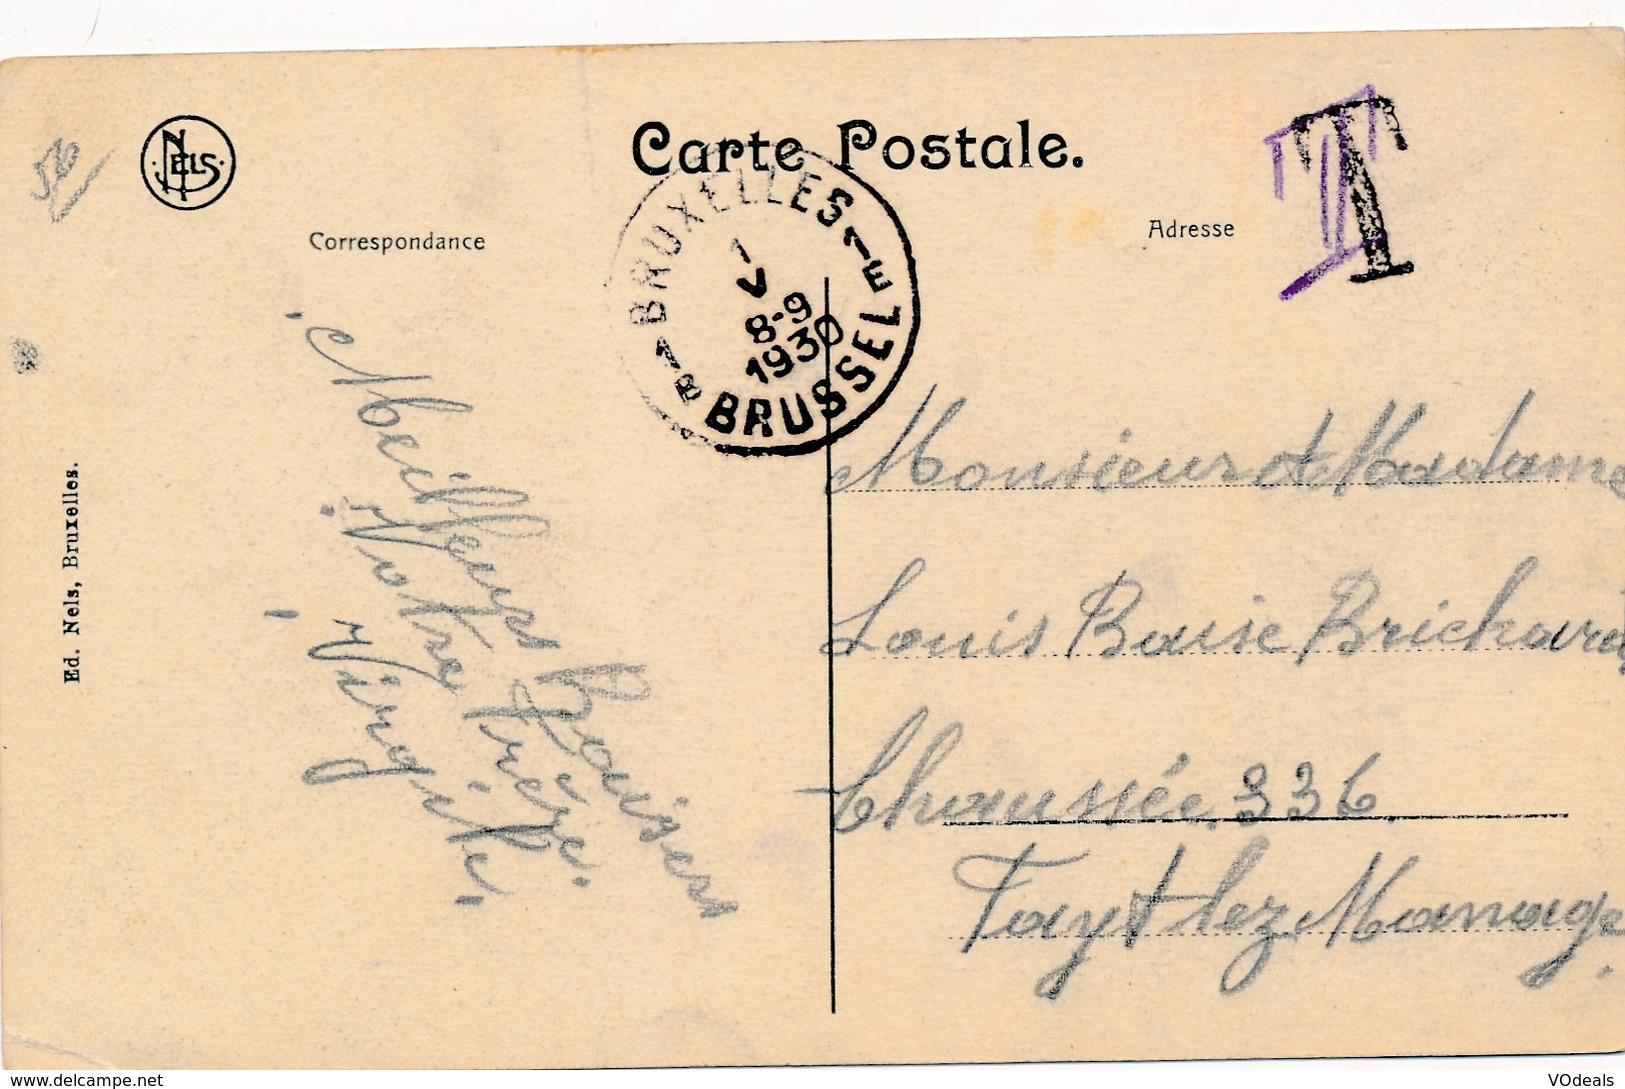 Carte Postale.
NELS
56
T
T
Correspondance
Adresse
BRUXELLES 1E
1
V
8-9
1930
1B BRUSSEL
Meilleurs Baisers
Votre Frère.
Virgile.
Monsieur et Madame
Louis Baise Brichard
Chaussée. 336.
Fayt lez Manage.
Ed. Nels, Bruxelles.
delcampe.net
VOdeals